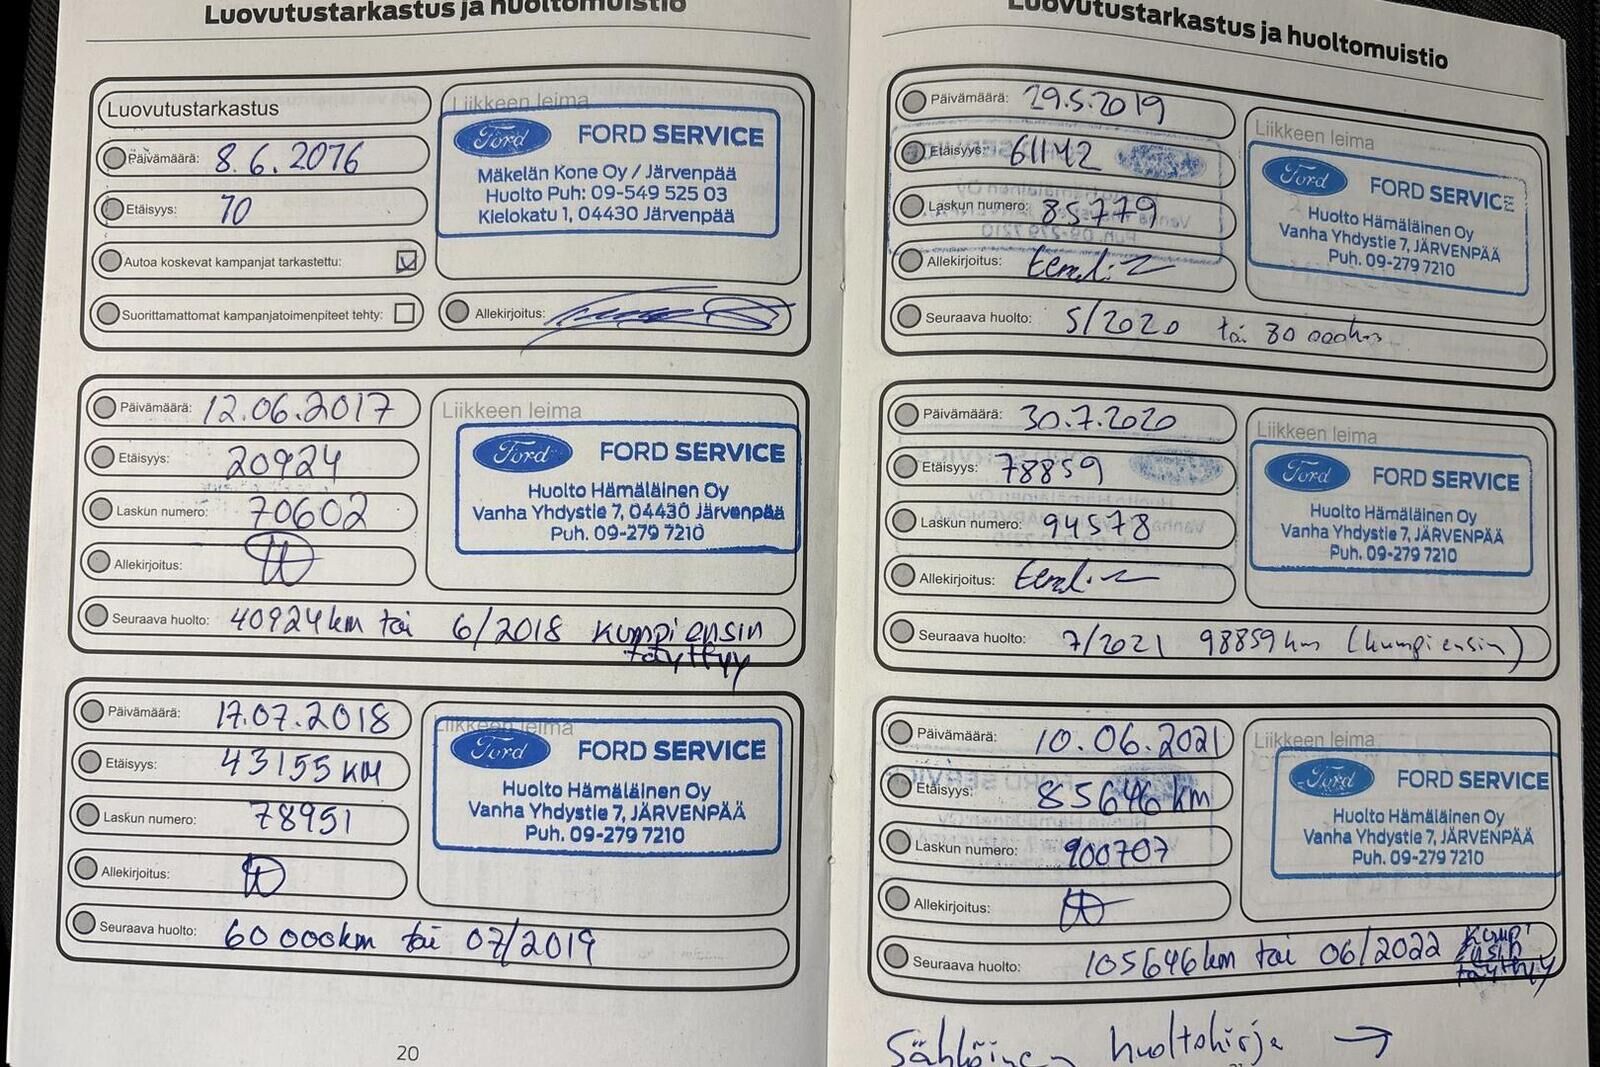 Luovutustarkastus ja huoltomuistio
Luovutustarkastus
Päivämäärä: 8.6.2016
Etäisyys: 70
Autoa koskevat kampanjat tarkastettu:
Suorittamattomat kampanjatoimenpiteet tehty:
Liikkeen leima
Ford FORD SERVICE
Mäkelän Kone Oy / Järvenpää
Huolto Puh: 09-549 525 03
Kielokatu 1, 04430 Järvenpää
Allekirjoitus:
Päivämäärä: 12.06.2017
Etäisyys: 20924
Laskun numero: 70602
Allekirjoitus:
Liikkeen leima
Ford FORD SERVICE
Huolto Hämäläinen Oy
Vanha Yhdystie 7, 04430 Järvenpää
Puh. 09-279 7210
Seuraava huolto: 40924km tai 6/2018 kumpi ensin
täyttyy
Päivämäärä: 17.07.2018
Etäisyys: 43155 KM
Laskun numero: 78951
Allekirjoitus:
Liikkeen leima
Ford FORD SERVICE
Huolto Hämäläinen Oy
Vanha Yhdystie 7, JÄRVENPÄÄ
Puh. 09-279 7210
Seuraava huolto: 60 000km tai 07/2019
20
Luovutustarkastus ja huoltomuistio
Päivämäärä: 29.5.2019
Etäisyys: 61142
Laskun numero: 85779
Allekirjoitus:
Liikkeen leima
Ford FORD SERVICE
Huolto Hämäläinen Oy
Vanha Yhdystie 7, JÄRVENPÄÄ
Puh. 09-279 7210
Seuraava huolto: 5/2020 tai 80 000km
Päivämäärä: 30.7.2020
Etäisyys: 78859
Laskun numero: 94578
Allekirjoitus:
Liikkeen leima
Ford FORD SERVICE
Huolto Hämäläinen Oy
Vanha Yhdystie 7, JÄRVENPÄÄ
Puh. 09-279 7210
Seuraava huolto: 7/2021 98859km (kumpi ensin)
Päivämäärä: 10.06.2021
Etäisyys: 85646 km
Laskun numero: 900707
Allekirjoitus:
Liikkeen leima
Ford FORD SERVICE
Huolto Hämäläinen Oy
Vanha Yhdystie 7, JÄRVENPÄÄ
Puh. 09-279 7210
Seuraava huolto: 105646km tai 06/2022 kumpi
ensin
täyttyy
Sähköinen huoltokirja →